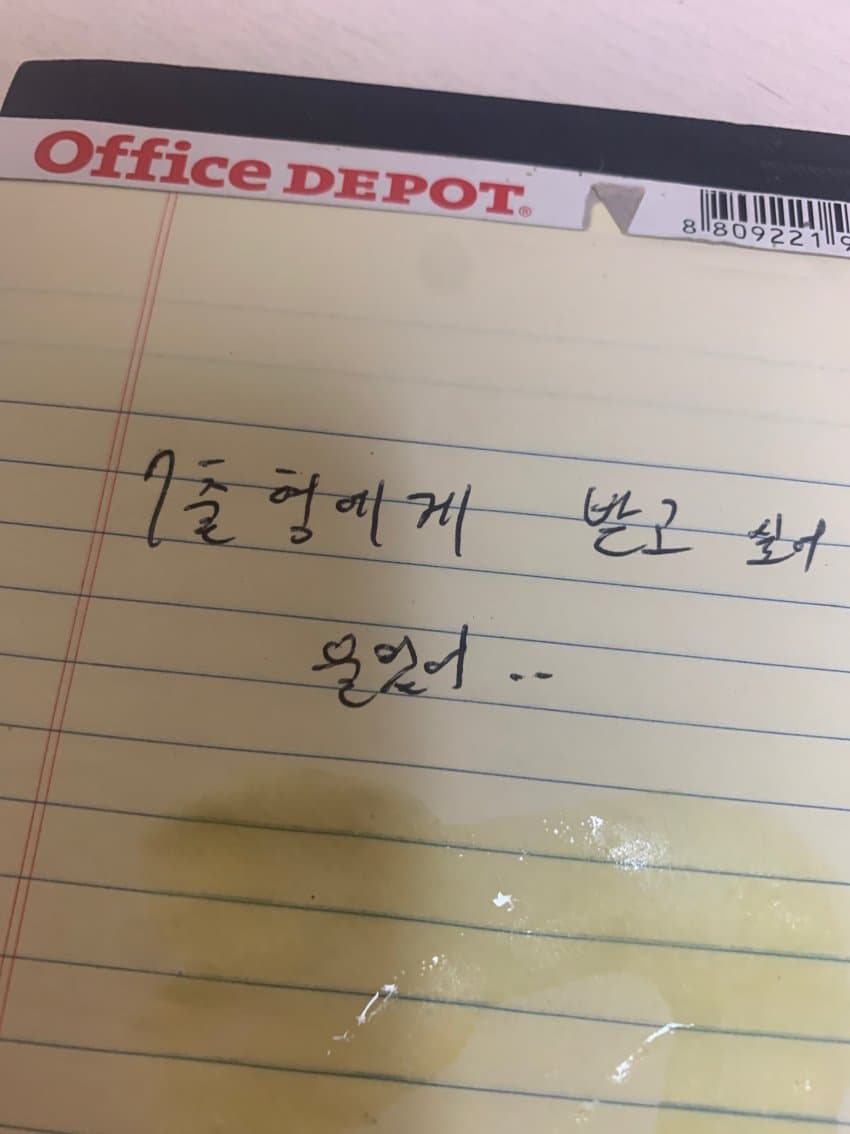 Office DEPOT®
8 809221 9
형에게 받고 싶어
울었어 ..